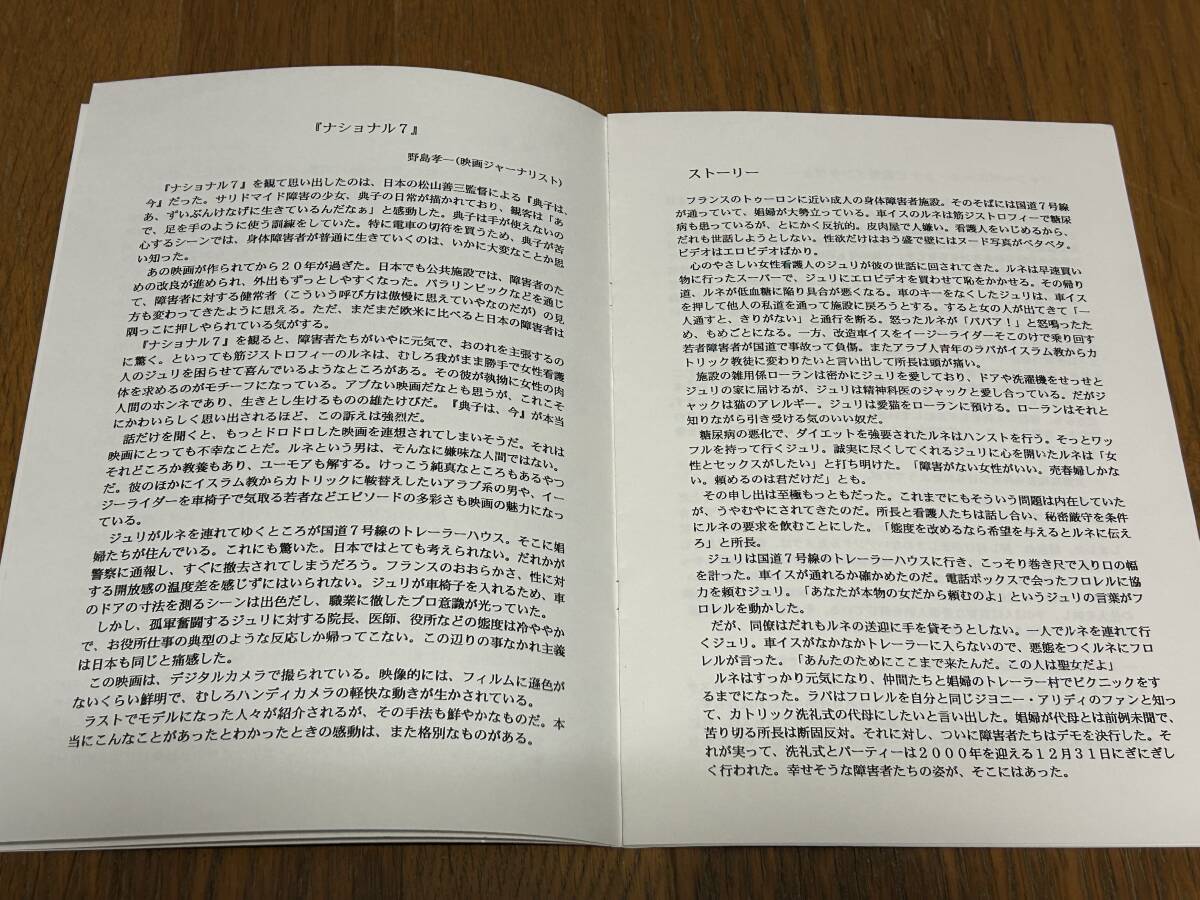 『ナショナル７』
野島孝一（映画ジャーナリスト）
『ナショナル７』を観て思い出したのは、日本の松山善三監督による『典子は、
今』だった。サリドマイド障害の少女、典子の日常が描かれており、観客は「あ
あ、ずいぶんけなげに生きているんだなぁ」と感動した。典子は手が使えないの
で、足を手のように使う訓練をしていた。特に電車の切符を買うため、典子が苦
心するシーンでは、身体障害者が普通に生きていくのは、いかに大変なことか思
い知った。
あの映画が作られてから２０年が過ぎた。日本でも公共施設では、障害者のた
めの改良が進められ、外出もずっとしやすくなった。パラリンピックなどを通じ
て、障害者に対する健常者（こういう呼び方は傲慢に思えていやなのだが）の見
方も変わってきたように思える。ただ、まだまだ欧米に比べると日本の障害者は
隅っこに押しやられている気がする。
『ナショナル７』を観ると、障害者たちがいやに元気で、おのれを主張するの
に驚く。といっても筋ジストロフィーのルネは、むしろ我がまま勝手で女性看護
人のジュリを困らせて喜んでいるようなところがある。その彼が執拗に女性の肉
体を求めるのがモチーフになっている。アブない映画だなとも思うが、これこそ
人間のホンネであり、生きとし生けるものの雄たけびだ。『典子は、今』が本当
にかわいらしく思い出されるほど、この訴えは強烈だ。
話だけを聞くと、もっとドロドロした映画を連想されてしまいそうだ。それは
映画にとっても不幸なことだ。ルネという男は、そんなに嫌味な人間ではない。
それどころか教養もあり、ユーモアも解する。けっこう純真なところもあるやつ
だ。彼のほかにイスラム教からカトリックに鞍替えしたいアラブ系の男や、イー
ジーライダーを車椅子で気取る若者などエピソードの多彩さも映画の魅力になっ
ている。
ジュリがルネを連れてゆくところが国道７号線のトレーラーハウス。そこに娼
婦たちが住んでいる。これにも驚いた。日本ではとても考えられない。だれかが
警察に通報し、すぐに撤去されてしまうだろう。フランスのおおらかさ、性に対
する開放感の温度差を感じずにはいられない。ジュリが車椅子を入れるため、車
のドアの寸法を測るシーンは出色だし、職業に徹したプロ意識が光っていた。
しかし、孤軍奮闘するジュリに対する院長、医師、役所などの態度は冷ややか
で、お役所仕事の典型のような反応しか帰ってこない。この辺りの事なかれ主義
は日本も同じと痛感した。
この映画は、デジタルカメラで撮られている。映像的には、フィルムに遜色が
ないくらい鮮明で、むしろハンディカメラの軽快な動きが生かされている。
ラストでモデルになった人々が紹介されるが、その手法も鮮やかなものだ。本
当にこんなことがあったとわかったときの感動は、また格別なものがある。
ストーリー
フランスのトゥーロンに近い成人の身体障害者施設。そのそばには国道７号線
が通っていて、娼婦が大勢立っている。車イスのルネは筋ジストロフィーで糖尿
病も患っているが、とにかく反抗的。皮肉屋で人嫌い。看護人をいじめるから、
だれも世話しようとしない。性欲だけはおう盛で壁にはヌード写真がベタベタ。
ビデオはエロビデオばかり。
心のやさしい女性看護人のジュリが彼の世話に回されてきた。ルネは早速買い
物に行ったスーパーで、ジュリにエロビデオを買わせて恥をかかせる。その帰り
道、ルネが低血糖に陥り具合が悪くなる。車のキーをなくしたジュリは、車イス
を押して他人の私道を通って施設に戻ろうとする。すると女の人が出てきて「一
人通すと、きりがない」と通行を断る。怒ったルネが「ババア！」と怒鳴ったた
め、もめごとになる。一方、改造車イスをイージーライダーそこのけで乗り回す
若者障害者が国道で事故って負傷。またアラブ人青年のラバがイスラム教からカ
トリック教徒に変わりたいと言い出して所長は頭が痛い。
施設の雑用係ローランは密かにジュリを愛しており、ドアや洗濯機をせっせと
ジュリの家に届けるが、ジュリは精神科医のジャックと愛し合っている。だがジ
ャックは猫のアレルギー。ジュリは愛猫をローランに預ける。ローランはそれと
知りながら引き受ける気のいい奴だ。
糖尿病の悪化で、ダイエットを強要されたルネはハンストを行う。そっとワッ
フルを持って行くジュリ。誠実に尽くしてくれるジュリに心を開いたルネは「女
性とセックスがしたい」と打ち明けた。「障害がない女性がいい。売春婦しかな
い。頼めるのは君だけだ」とも。
その申し出は至極もっともだった。これまでにもそういう問題は内在していた
が、うやむやにされてきたのだ。所長と看護人たちは話し合い、秘密厳守を条件
にルネの要求を飲むことにした。「態度を改めるなら希望を与えるとルネに伝え
ろ」と所長。
ジュリは国道７号線のトレーラーハウスに行き、こっそり巻き尺で入り口の幅
を計った。車イスが通れるか確かめたのだ。電話ボックスで会ったフロレルに協
力を頼むジュリ。「あなたが本物の女だから頼むのよ」というジュリの言葉がフ
ロレルを動かした。
だが、同僚はだれもルネの送迎に手を貸そうとしない。一人でルネを連れて行
くジュリ。車イスがなかなかトレーラーに入らないので、悪態をつくルネにフロ
レルが言った。「あんたのためにここまで来たんだ。この人は聖女だよ」
ルネはすっかり元気になり、仲間たちと娼婦のトレーラー村でピクニックをす
るまでになった。ラバはフロレルを自分と同じジョニー・アリディのファンと知っ
て、カトリック洗礼式の代母にしたいと言い出した。娼婦が代母とは前例未聞で、
苦り切る所長は断固反対。それに対し、ついに障害者たちはデモを決行した。そ
れが実って、洗礼式とパーティーは２０００年を迎える１２月３１日にぎにぎし
く行われた。幸せそうな障害者たちの姿が、そこにはあった。